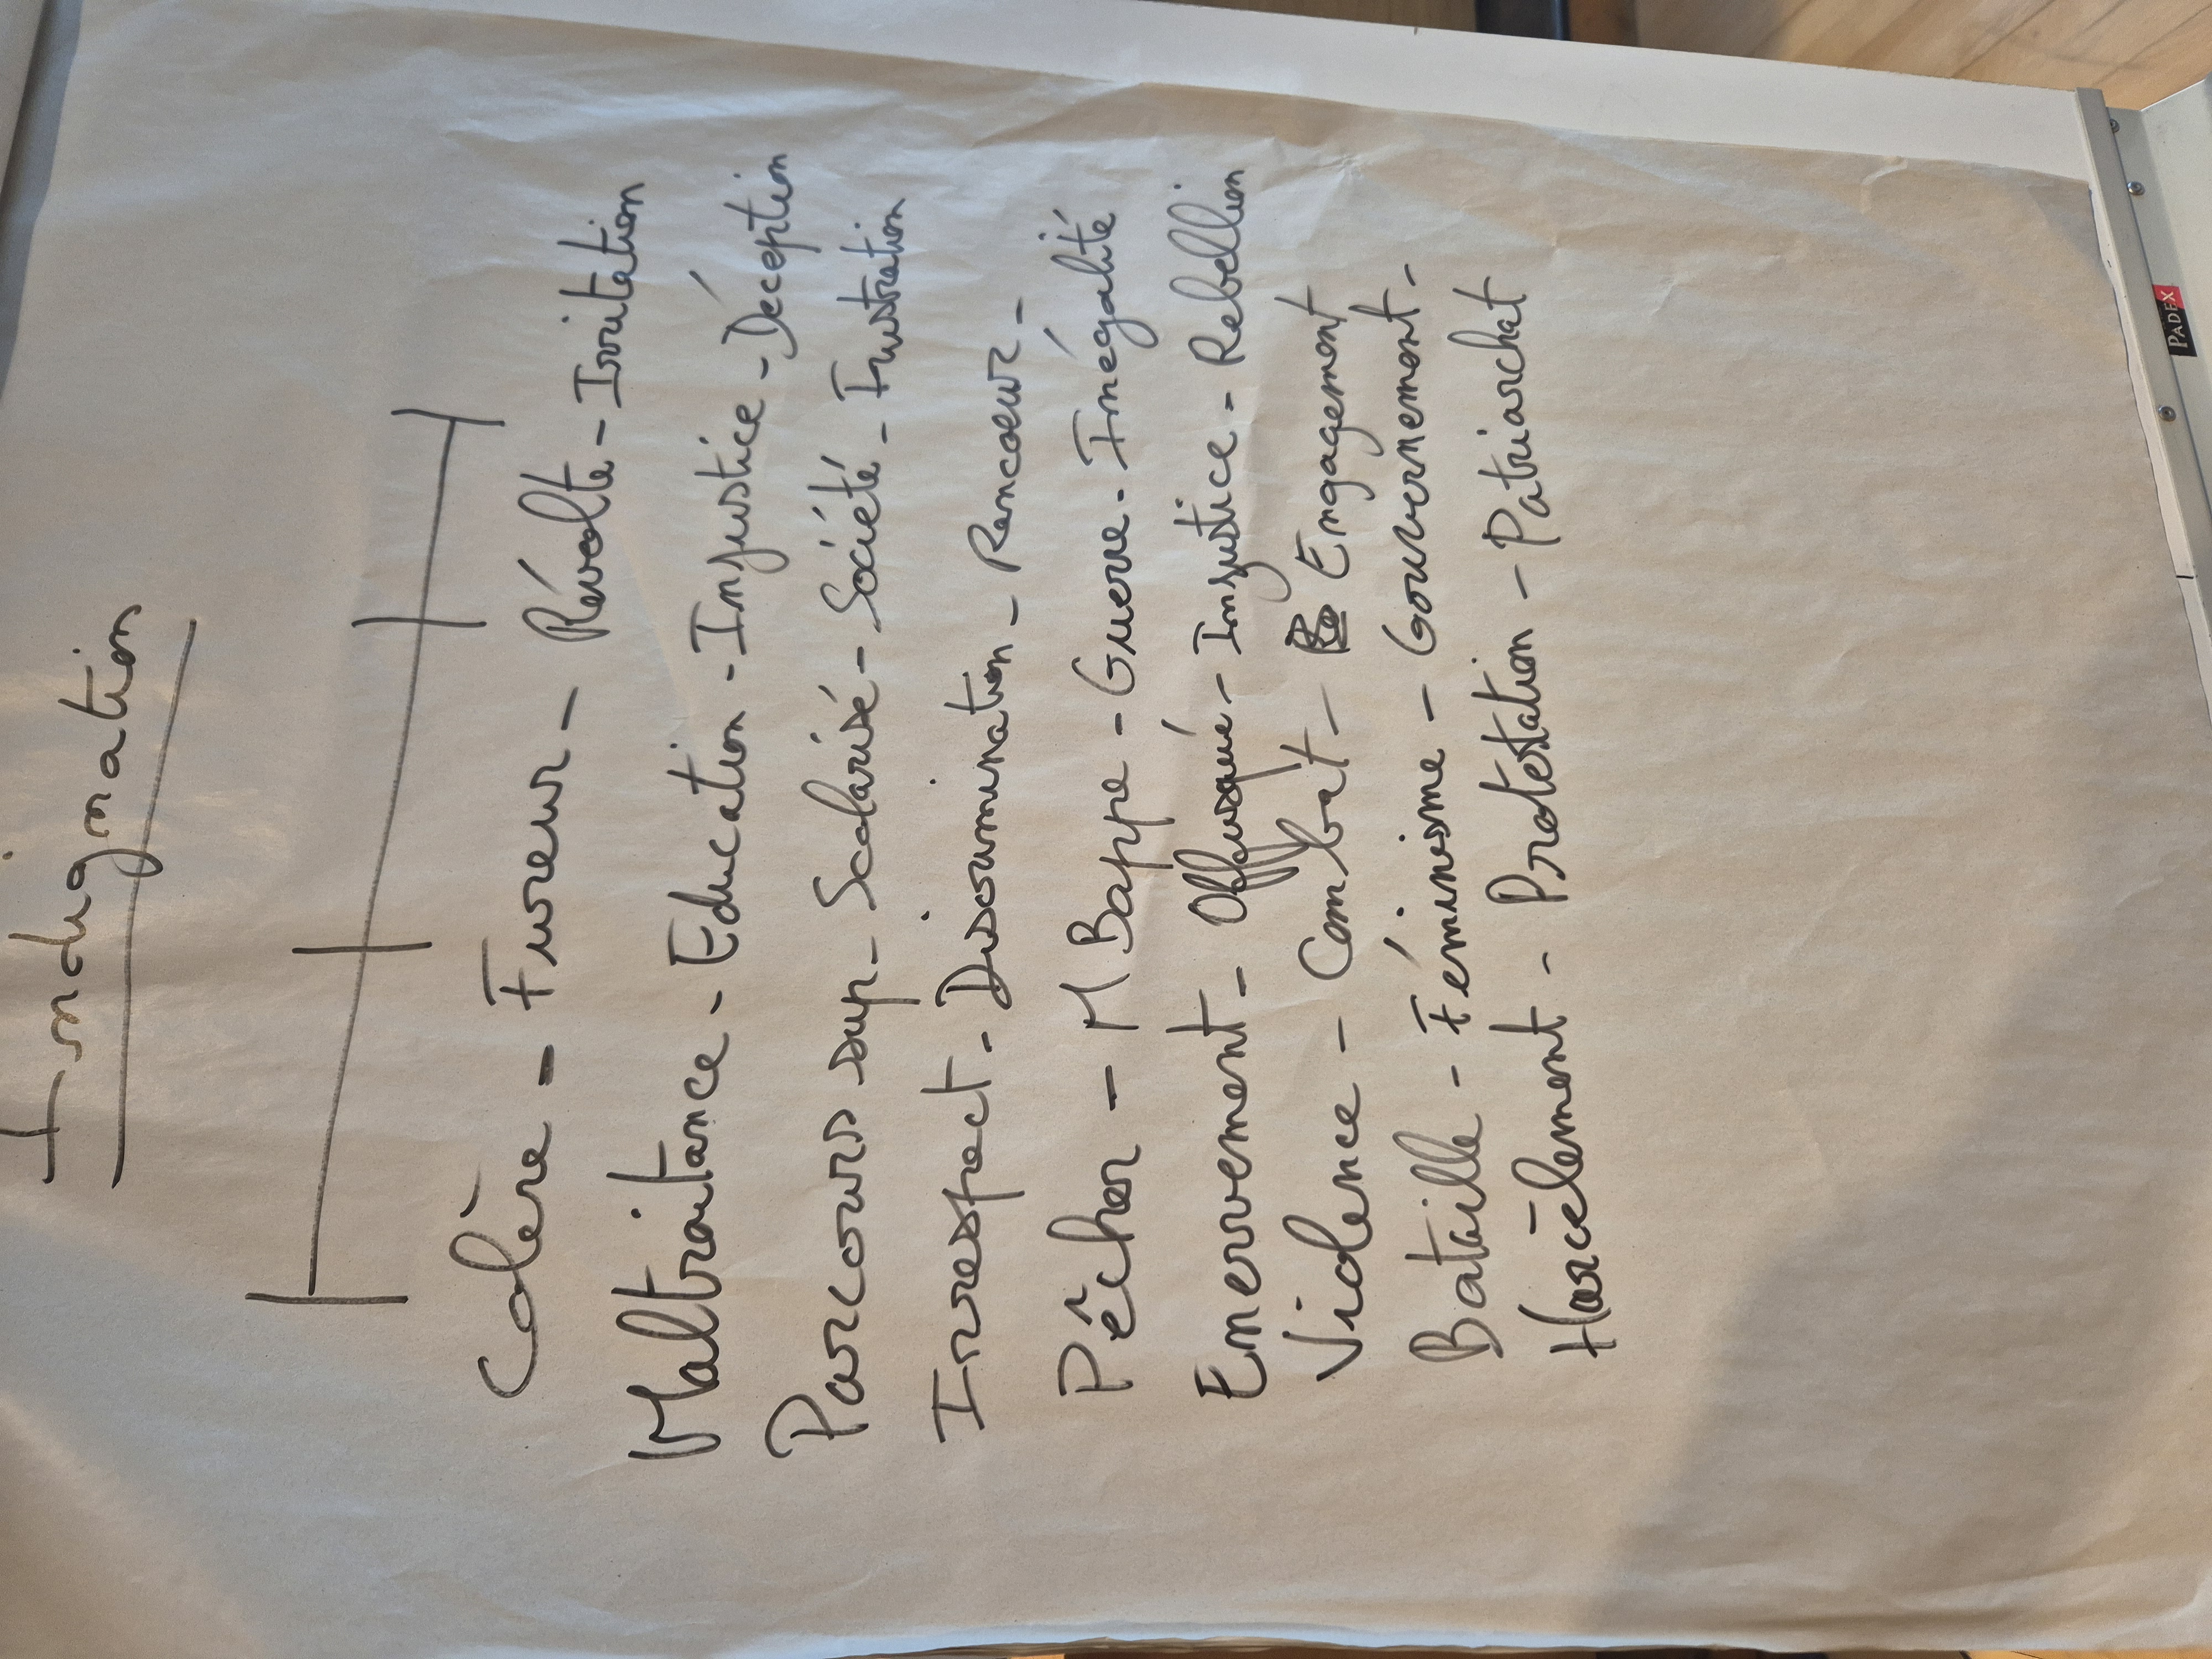 Indignation
Colère - Fureur - Révolte - Irritation
Maltraitance - Education - Injustice - Déception
Parcours sup - Scolarisé - Société - Frustration
Irrespect - Discrimination - Rancoeur -
Pêcher - M Bappe - Guerre - Inégalité
Enervement - Offusqué - Injustice - Rebellion
Violence - Combat - Engagement
Bataille - Féminisme - Gouvernement -
Harcèlement - Protestation - Patriarchat
PADEX